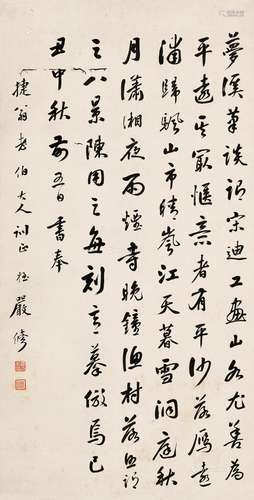 夢溪筆談謂宋迪工畫山水尤善為
平遠其最愜意者有平沙落雁遠
浦歸颿山市晴嵐江天暮雪洞庭秋
月瀟湘夜雨煙寺晚鐘漁村落照謂
之八景陳用之每刻意摹倣焉己
丑中秋前五日書奉
捷翁老伯大人訓正 姪嚴修